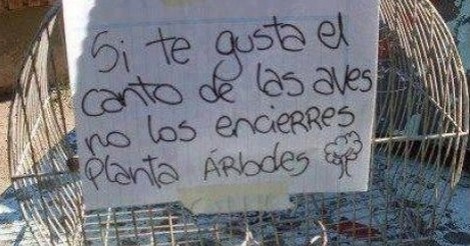 Si te gusta el
canto de las aves
no los encierres
Planta Árboles